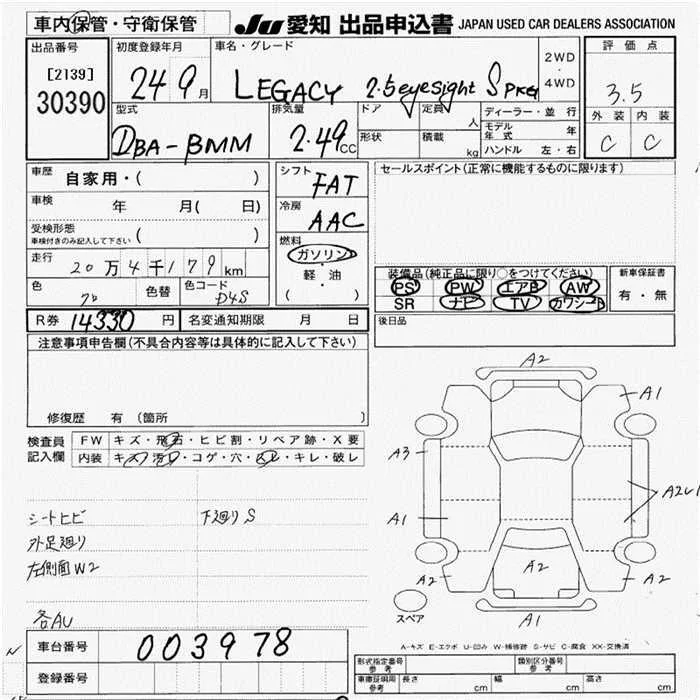 車内保管・守衛保管
JU 愛知 出品申込書 JAPAN USED CAR DEALERS ASSOCIATION
出品番号
[2139]
30390
初度登録年月
24 9月
車名・グレード
LEGACY 2.5 eyesight S PKG
2WD
・
4WD
評価点
3.5
外装 内装
C C
型式
DBA-BMM
排気量
2.49cc
ドア
形状
定員 人
積載 kg
ディーラー・並行
モデル年式 年
ハンドル 左・右
車歴 自家用・( )
車検 年 月( 日)
受検形態
車検付きのみ記入して下さい ( )
走行 20万4千179km
色 色替 色コード
D4S
シフト FAT
冷房 AAC
燃料
ガソリン
軽・油
( )
セールスポイント(正常に機能するものに限ります)
装備品(純正品に限り○をつけてください)
PS PW エアB AW
SR ナビ TV カワシート
新車保証書
有・無
後日品
R券 14330円 名変通知期限 月 日
注意事項申告欄(不具合内容等は具体的に記入して下さい)
修復歴 有 (箇所 )
検査員記入欄
FW キズ・飛石・ヒビ割・リペア跡・X要
内装 キズ・汚れ・コゲ・穴・スレ・キレ・破レ
シートヒビ 下廻りS
外足廻り
左側面W2
各AU
A2
A1
A3
A1
A2
A2
A2
A1
スペア
A-キズ E-エクボ U-凹み W-補修跡 S-サビ C-腐食 XX-交換済
車台番号 003978
登録番号
型式指定番号
参考
類別区分番号
参考
車庫証明用
参考
長さ cm 幅 cm 高さ cm